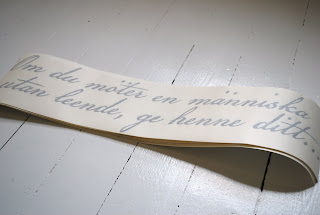 Om du möter en människa
utan leende, ge henne ditt...